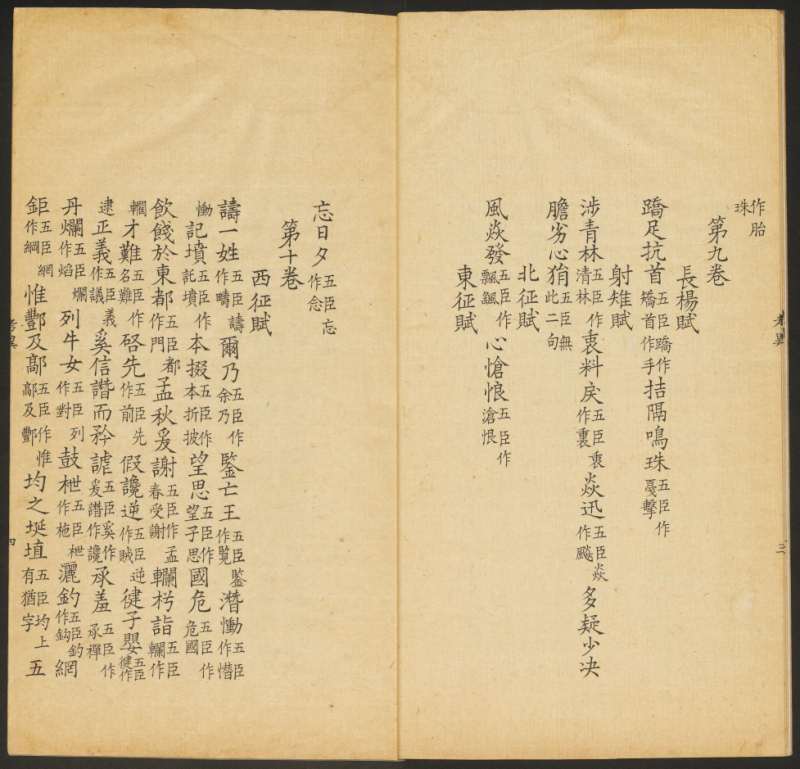 作胎珠
第九卷
長楊賦
蹻足抗首五臣蹻作矯首作手拮隔鳴珠五臣作戞擊
射雉賦
涉青林五臣作清林衷料戾五臣衷作裏焱迅五臣焱作飈多疑少決
膽劣心狷五臣無此二句
北征賦
風焱發五臣作飄飆心愴悢五臣作滄恨
東征賦
忘日夕五臣忘作念
第十卷
西征賦
譸一姓五臣譸作疇爾乃五臣作余乃鑒亡王五臣鑒作覽潛慟五臣作憯
慟記墳五臣作託墳本掇五臣作本折披望思五臣作望子思國危五臣作危國
飲餞於東都五臣都作門孟秋爰謝五臣作孟春受謝轥枍詣五臣轥作
轢才難五臣作名難啓先五臣先作前假讒逆五臣逆作賊健子嬰五臣健作
逮正義五臣義作議奚信譖而矜謔五臣奚作爰譖作讒承羞五臣作承禪
丹爛五臣爛作焰列牛女五臣列作對鼓枻五臣枻作栧灑釣五臣釣作鈎網
鉅五臣網作綱惟酆及鄗五臣作惟鄗及酆均之埏埴五臣均上有猶字五
考異
三
考異
四